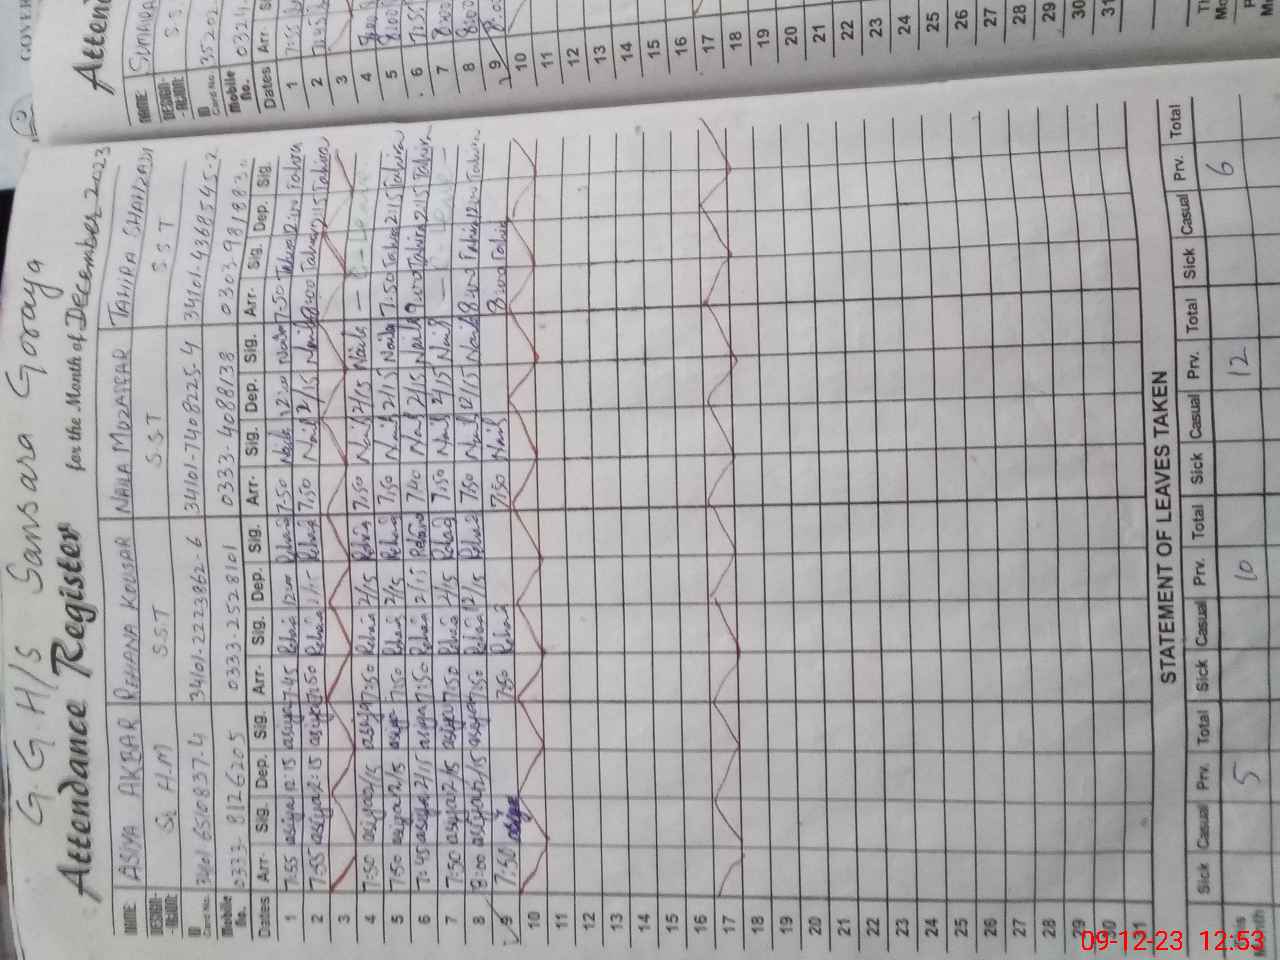 G. G. H/s Sansara Goraya
Attendance Register for the Month of December 2023
NAME ASIYA AKBAR REHANA KOUSAR NAILA MUZAFFAR TAHIRA SHAHZADI
DESIGN-ATION: Sr H.M S.S.T S.S.T S.S.T
ID Card No. 34101-6510837-4 34101-2223862-6 34101-7408225-4 34101-4368545-2
Mobile No. 0333-8126205 0333-2528101 0333-4088138 0303-98183
Dates Arr- Sig. Dep. Sig. Arr- Sig. Dep. Sig. Arr- Sig. Dep. Sig. Arr- Sig. Dep. Sig.
1 7:55 asiya 12:15 asiya 7:45 Rehana 12:00 Rehana 7:50 Naila 12:00 Naila 7:50 Tahira 12:00 Tahira
2 7:55 asiya 2:15 asiya 7:50 Rehana 2/15 Rehana 7:50 Naila 2/15 Naila 8:00 Tahira 2:15 Tahira
3
4 7:50 asiya 2/15 asiya 7:50 Rehana 2/15 Rehana 7:50 Naila 2/15 Naila — C-Leave
5 7:50 asiya 2/15 asiya 7:50 Rehana 2/15 Rehana 7:50 Naila 2/15 Naila 7:50 Tahira 2:15 Tahira
6 7:45 asiya 2/15 asiya 7:50 Rehana 2/15 Rehana 7:40 Naila 2/15 Naila 9:00 Tahira 2:15 Tahira
7 7:50 asiya 2/15 asiya 7:50 Rehana 2/15 Rehana 7:50 Naila 2/15 Naila — C-Leave —
8 8:00 asiya 12/15 asiya 7:50 Rehana 12/15 Rehana 7:50 Naila 12/15 Naila 8:00 Tahira 12:00 Tahira
9 7:50 asiya 7:50 Rehana 7:50 Naila 8:00 Tahira
10
11
12
13
14
15
16
17
18
19
20
21
22
23
24
25
26
27
28
29
30
31
STATEMENT OF LEAVES TAKEN
Sick Casual Prv. Total Sick Casual Prv. Total Sick Casual Prv. Total Sick Casual Prv. Total
5 10 12 6
Month
Atten
NAME
DESIGN-ATION:
ID Card No. 35202
Mobile No. 0321
Dates Arr- S
1 7:55
2
3
4 8:00
5 8:00
6 7:55
7 8:00
8 8:00
9 8:00
10
11
12
13
14
15
16
17
18
19
20
21
22
23
24
25
26
27
28
29
30
31
COVER
09-12-23 12:53